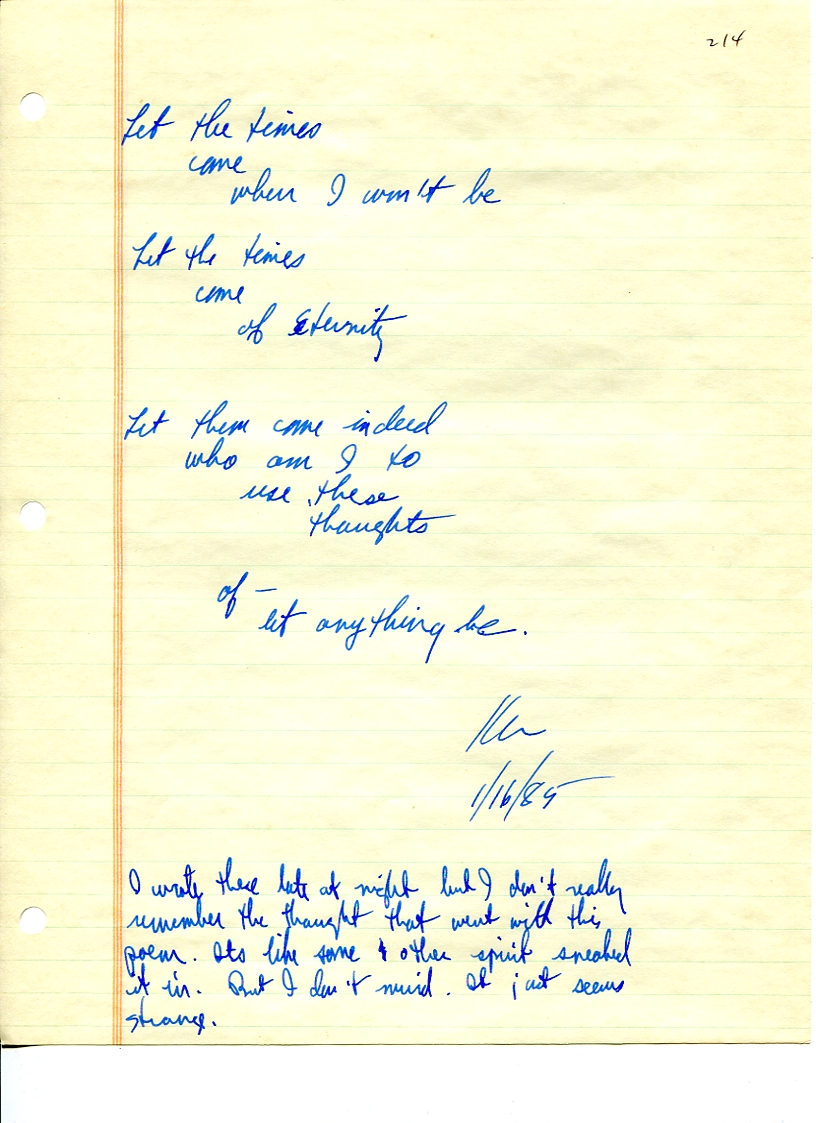 214
Let the times
come
when I won't be
Let the times
come
of Eternity
Let them come indeed
who am I to
use these
thoughts
of —
let anything be.
Ken
1/16/85
I wrote these late at night but I don't really
remember the thought that went with this
poem. Its like some other spirit sneaked
it in. But I don't mind. It just seems
strange.